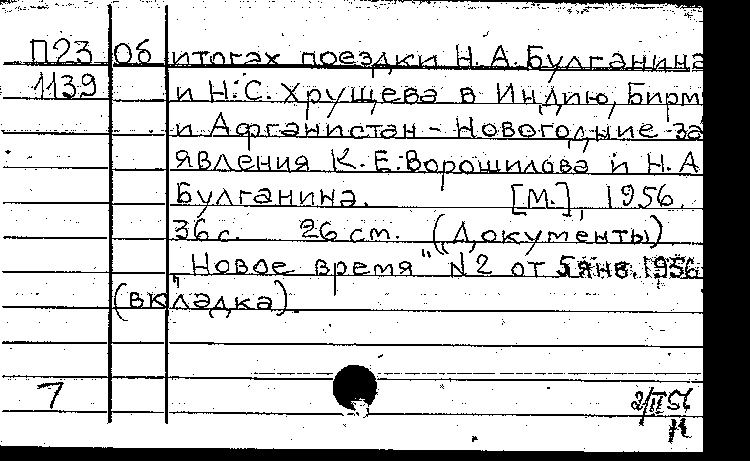 П23 Об итогах поездки Н. А. Булганина
1139 и Н. С. Хрущева в Индию, Бирм
и Афганистан - Новогодние за
явления К. Е. Ворошилова и Н. А
Булганина. [М.], 1956.
36 с. 26 см. (Документы)
"Новое время" N2 от 5 янв. 1956
(вкладка).
7
2/II 56